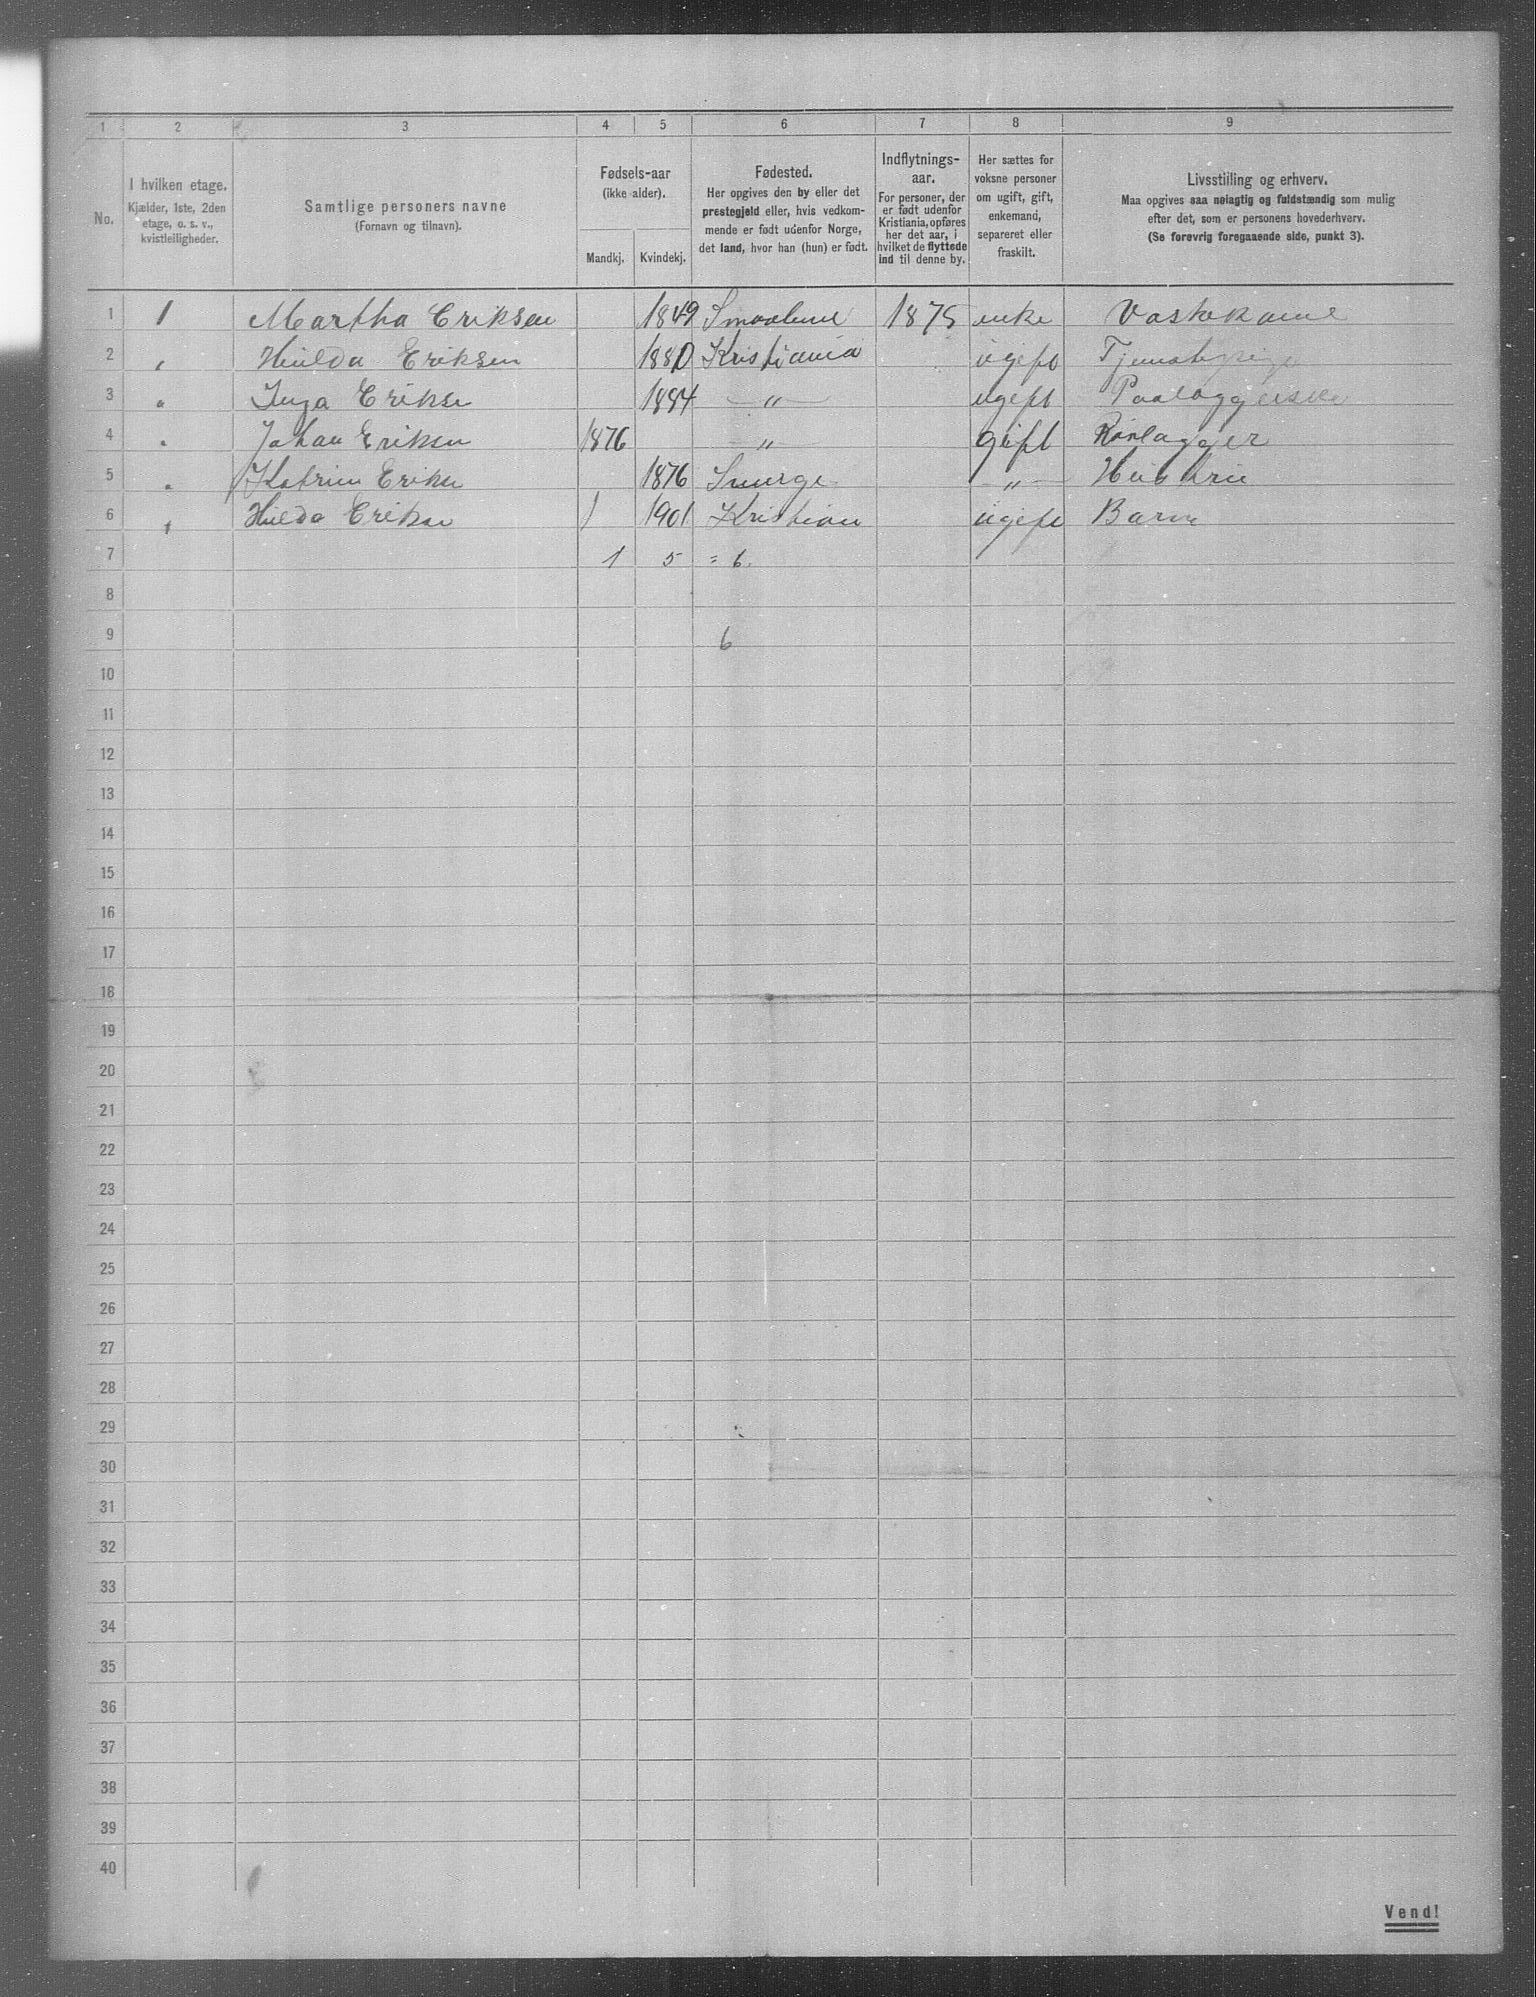 1 2 3 4 5 6 7 8 9
No.
I hvilken etage.
Kjælder, 1ste, 2den
etage, o. s. v.,
kvistleiligheder.
Samtlige personers navne
(Fornavn og tilnavn).
Fødsels-aar
(ikke alder).
Mandkj. Kvindekj.
Fødested.
Her opgives den by eller det
prestegjeld eller, hvis vedkom-
mende er født udenfor Norge,
det land, hvor han (hun) er født.
Indflytnings-
aar.
For personer, der
er født udenfor
Kristiania, opføres
her det aar, i
hvilket de flyttede
ind til denne by.
Her sættes for
voksne personer
om ugift, gift,
enkemand,
separeret eller
fraskilt.
Livsstilling og erhverv.
Maa opgives saa nøiagtig og fuldstændig som mulig
efter det, som er personens hovederhverv.
(Se forøvrig foregaaende side, punkt 3).
1 1 Martha Eriksen 1849 Smaalene 1875 enke Vaskekone
2 " Hilda Eriksen 1880 Kristiania ugift Tjenestepige
3 " Inga Erikse 1884 — " — ugift Paalæggerske
4 " Johan Eriksen 1876 — " — gift Rørlægger
5 " Katrine Erikse 1876 — " —
6 " Hilda Erikse 1901 Kristian ugift Barn
7 1 5 = 6.
8
9 6
10
11
12
13
14
15
16
17
18
19
20
21
22
23
24
25
26
27
28
29
30
31
32
33
34
35
36
37
38
39
40
Vend!